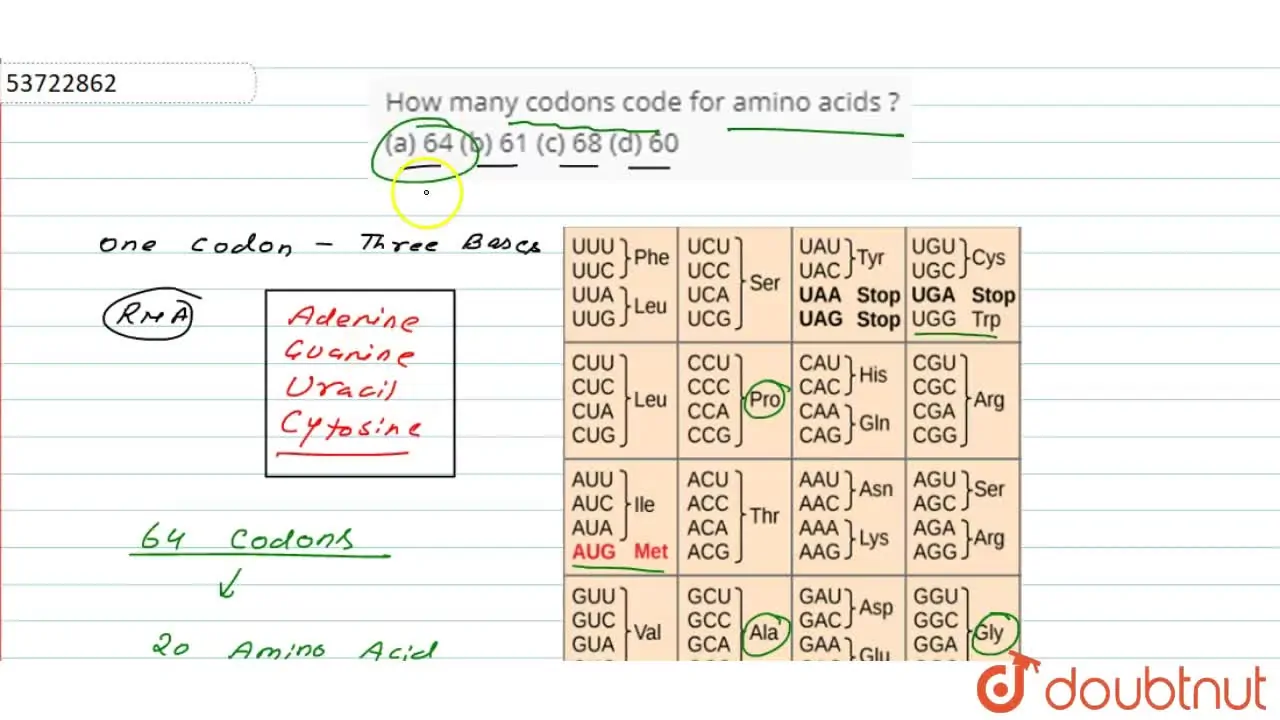 53722862
How many codons code for amino acids ?
(a) 64 (b) 61 (c) 68 (d) 60
One Codon - Three Bases
RNA
Adenine
Guanine
Uracil
Cytosine
64 Codons
20 Amino Acid
UUU Phe UCU Ser UAU Tyr UGU Cys
UUC UCC UAC UGC
UUA Leu UCA UAA Stop UGA Stop
UUG UCG UAG Stop UGG Trp
CUU Leu CCU Pro CAU His CGU Arg
CUC CCC CAC CGC
CUA CCA CAA Gln CGA
CUG CCG CAG CGG
AUU Ile ACU Thr AAU Asn AGU Ser
AUC ACC AAC AGC
AUA ACA AAA Lys AGA Arg
AUG Met ACG AAG AGG
GUU Val GCU Ala GAU Asp GGU Gly
GUC GCC GAC GGC
GUA GCA GAA Glu GGA
doubtnut